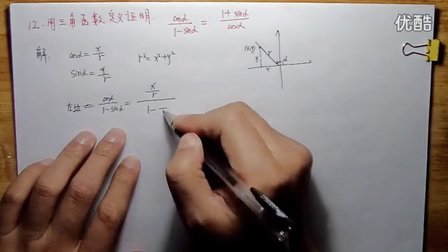 12. 用三角函数定义证明. cosα/(1-sinα) = (1+sinα)/cosα
解: cosα = x/r    r²=x²+y²
sinα = y/r
左边 = cosα/(1-sinα) = (x/r)/(1-
(x,y) r α y x
优酷